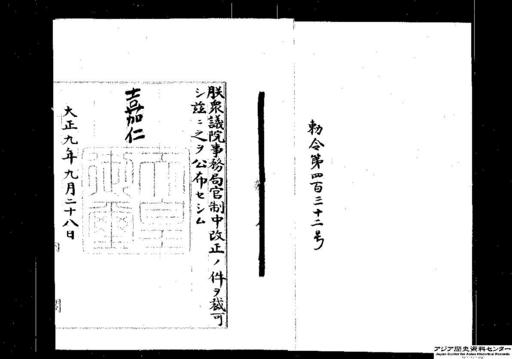 勅令第四百三十二号
朕衆議院事務局官制中改正ノ件ヲ裁可
シ茲ニ之ヲ公布セシム
嘉仁
大正九年九月二十八日
アジア歴史資料センター
Japan Center for Asian Historical Records